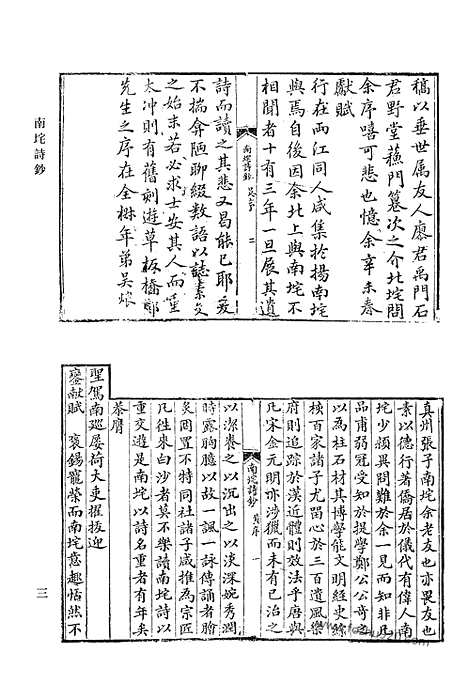 南垞詩鈔
稿以垂世属友人廖君禹門石
君野堂蘓門纂次之介北垞問
余序嘻可悲也憶余辛未春
獻賦
行在兩江同人咸集於揚南垞
與焉自後因余北上與南垞不
相聞者十有三年一旦展其遺
南垞詩鈔
二
詩而讀之其悲又曷能已耶爰
不揣弇陋聊綴數語以誌
之始末若必求士安其人而
太冲則有舊刻遊草板橋鄭
先生之序在全椒年弟吴烺
真州張子南垞余老友也亦畏友也
素以德行著僑居於儀代有偉人南
垞少頗異問難於余一見而知非凡
品甫弱冠受知於提學鄭公公奇之
以為柱石材其博學能文明經史綜
核百家諸子尤留心於三百遺風樂
府則追踪於漢近體則效法乎唐與
凡宋金元明亦渉獵而未有已治之
南垞詩鈔
序
一
以潔養之以沉出之以淡深婉秀潤
時露胸臆以故一諷一詠傳誦者膾
炙固置不特同社諸子咸推為宗匠
凡往来白沙者莫不樂讀南垞詩以
重交遊是南垞以詩名重者有年矣
恭膺
聖駕南廵屡荷大吏擢拔迎
鑾献賦
襃錫寵荣而南垞意趣恬然不
三